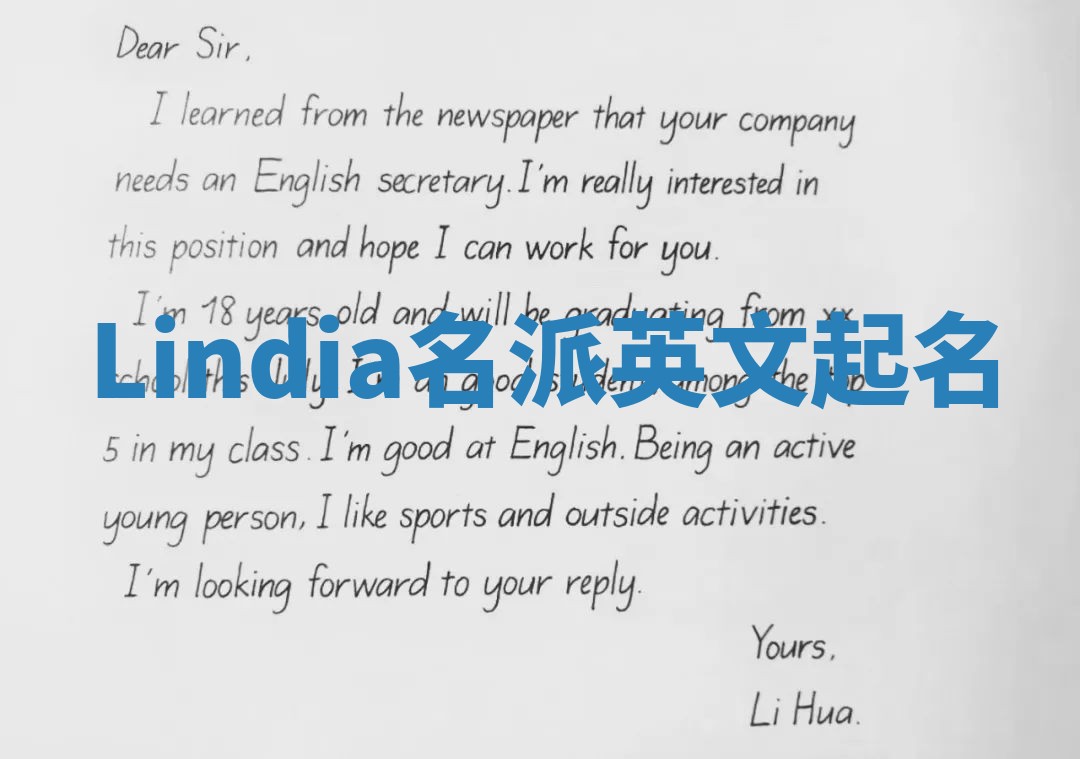 Dear Sir,
I learned from the newspaper that your company
needs an English secretary. I'm really interested in
this position and hope I can work for you.
I'm 18 years old and will be graduating from xx
Lindia名派英文起名
school this July I'm an good student among the top
5 in my class. I'm good at English. Being an active
young person, I like sports and outside activities.
I'm looking forward to your reply.
Yours,
Li Hua.